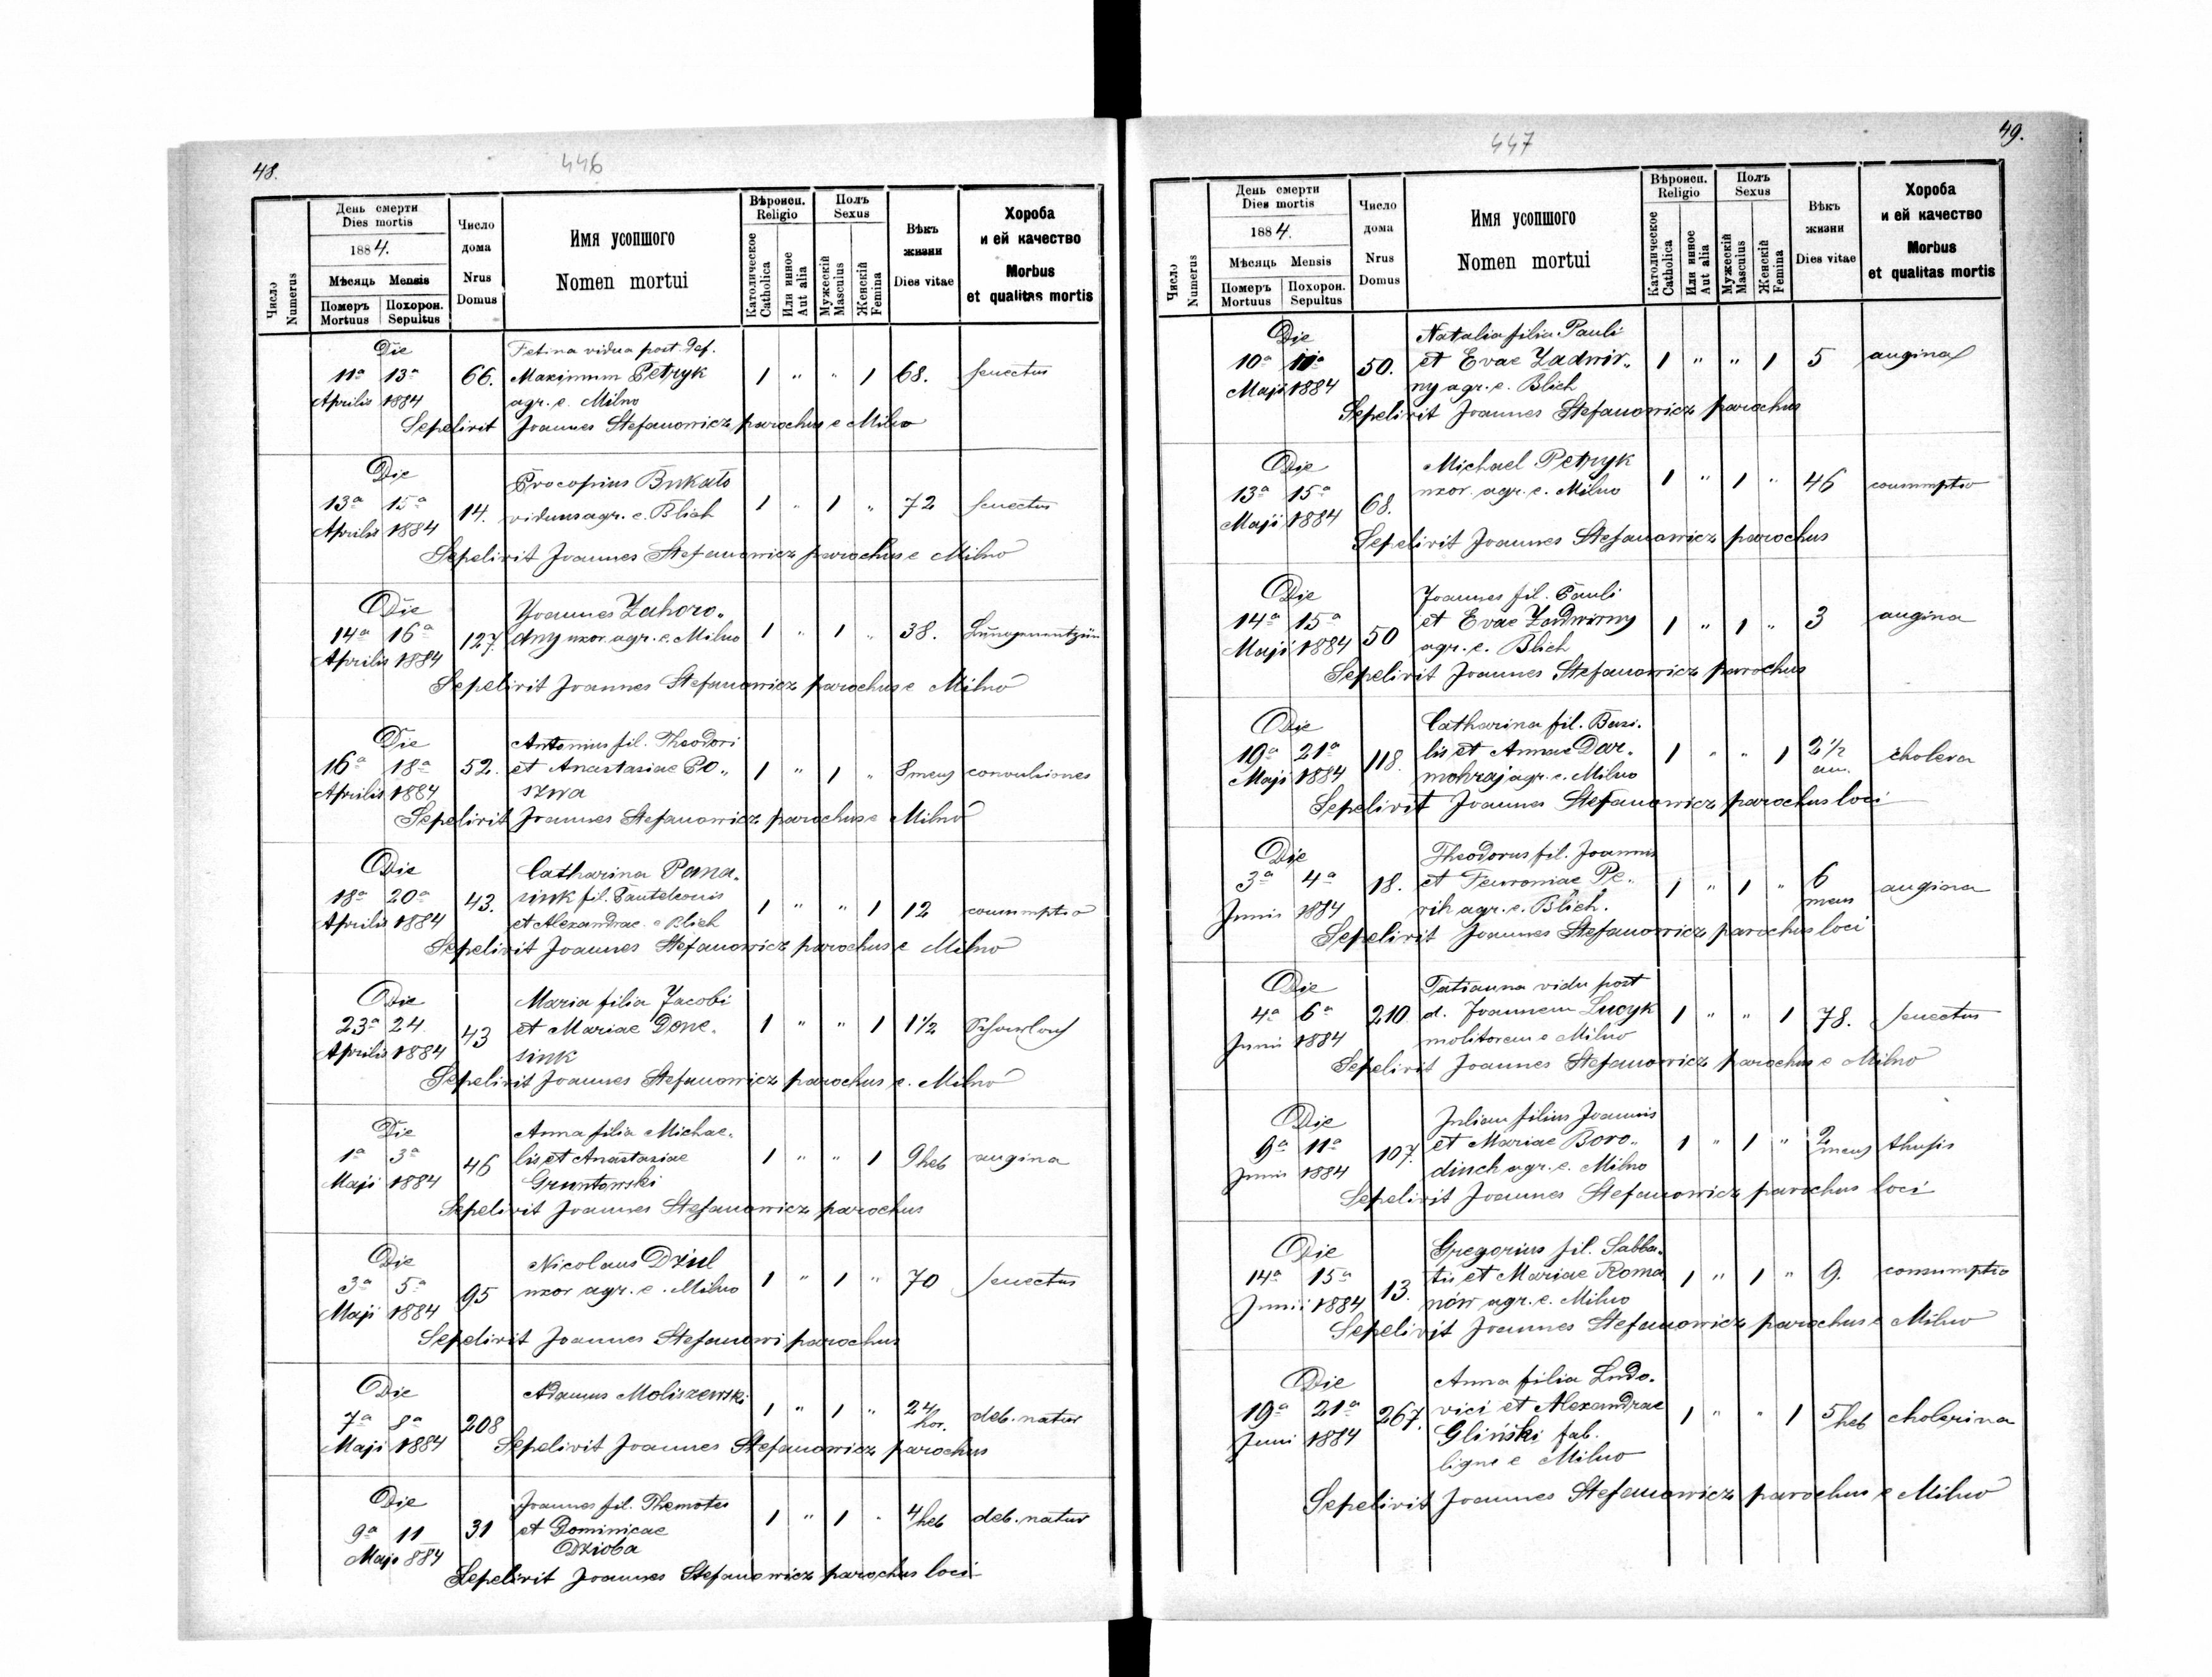 48.
446
Число
Numerus
День смерти
Dies mortis
1884.
Мѣсяць Mensis
Померъ
Mortuus
Похорон.
Sepultus
Число
дома
Nrus
Domus
Имя усопшого
Nomen mortui
Вѣроисп.
Religio
Католическое
Catholica
Или инное
Aut alia
Полъ
Sexus
Мужескій
Masculus
Женскій
Femina
Вѣкъ
жизни
Dies vitae
Хороба
и ей качество
Morbus
et qualitas mortis
Die
Fetina vidua post def.
11a 13a 66. Maximum Petryk 1 " " 1 68. senectus
Aprilis 1884 agr. e. Milno
Sepelivit Joannes Stefanowicz parochus e Milno
Die
Procopius Bukato
13a 15a 14. viduus agr. e. Blich 1 " 1 " 72 senectus
Aprilis 1884
Sepelivit Joannes Stefanowicz parochus e Milno
Die
Joannes Zahoro„
14a 16a 127. dny uxor. agr. e. Milno 1 " 1 " 38.
Aprilis 1884
Sepelivit Joannes Stefanowicz parochus e Milno
Die
Antonius fil. Theodori
16a 18a 52. et Anastasiae Po„ 1 " 1 " 8 mens convulsiones
Aprilis 1884 szwa
Sepelivit Joannes Stefanowicz parochus e Milno
Die
Catharina Pana.
18a 20a 43. siuk fil. Panteleonis 1 " " 1 12 consumptio
Aprilis 1884 et Alexandrae e Blich
Sepelivit Joannes Stefanowicz parochus e Milno
Die
Maria filia Jacobi
23a 24. 43 et Mariae Done. 1 " " 1 1 1/2
Aprilis 1884 siuk
Sepelivit Joannes Stefanowicz parochus e. Milno
Die
Anna filia Michae.
1a 3a 46 lis et Anastasiae 1 " " 1 9 heb angina
Maji 1884 Gruntowski
Sepelivit Joannes Stefanowicz parochus
Die
Nicolaus Dziul
3a 5a 95 uxor agr. e. Milno 1 " 1 " 70 senectus
Maji 1884
Sepelivit Joannes Stefanowi parochus
Die
Adamus Moliszewski
7a 8a 208 1 " 1 " 24 hor. deb. natur
Maji 1884
Sepelivit Joannes Stefanowicz parochus
Die
Joannes fil. Themotei
9a 11 31 et Dominicae 1 " 1 " 4 heb deb. natur
Maje 884 Dzioba
Sepelivit Joannes Stefanowicz parochus loci
49.
447
Число
Numerus
День смерти
Dies mortis
1884.
Мѣсяць Mensis
Померъ
Mortuus
Похорон.
Sepultus
Число
дома
Nrus
Domus
Имя усопшого
Nomen mortui
Вѣроисп.
Religio
Католическое
Catholica
Или инное
Aut alia
Полъ
Sexus
Мужескій
Masculus
Женскій
Femina
Вѣкъ
жизни
Dies vitae
Хороба
и ей качество
Morbus
et qualitas mortis
Die
Natalia filia Pauli
10a 11a 50. et Evae Zadwir„ 1 " " 1 5 angina
Maji 1884 ny agr. e. Blich
Sepelivit Joannes Stefanowicz parochus
Die
Michael Petryk
13a 15a 68. uxor. agr. e. Milno 1 " 1 " 46 consumptio
Maji 1884
Sepelivit Joannes Stefanowicz parochus
Die
Joannes fil. Pauli
14a 15a 50 et Evae Zadwirny 1 " 1 " 3 angina
Maji 1884 agr. e. Blich
Sepelivit Joannes Stefanowicz parochus
Die
Catharina fil. Basi.
19a 21a 118. lis et Annae Dor„ 1 " " 1 2 1/2 an. cholera
Maji 1884 mohraj agr. e. Milno
Sepelivit Joannes Stefanowicz parochus loci
Die
Theodorus fil. Joannis
3a 4a 18. et Fewroniae Pe„ 1 " 1 " 6 mens angina
Junii 1884 rih agr. e. Blich.
Sepelivit Joannes Stefanowicz parochus loci
Die
Tatianna vidu post
4a 6a 210 d. Joannem Lucyk 1 " " 1 78. senectus
Junii 1884 molitorem e Milno
Sepelivit Joannes Stefanowicz parochus e Milno
Die
Julian filius Joannis
9a 11a 107. et Mariae Boro„ 1 " 1 " 2 mens thusis
Junii 1884 dinch agr. e. Milno
Sepelivit Joannes Stefanowicz parochus loci
Die
Gregorius fil. Sabba.
14a 15a 13. tis et Mariae Roma 1 " 1 " 9. consumptio
Junii 1884 nów agr. e. Milno
Sepelivit Joannes Stefanowicz parochus e Milno
Die
Anna filia Ludo.
19a 21a 267. vici et Alexandrae 1 " " 1 5 heb cholerina
Juni 1884 Gliński fab.
ligne e Milno
Sepelivit Joannes Stefanowicz parochus e Milno